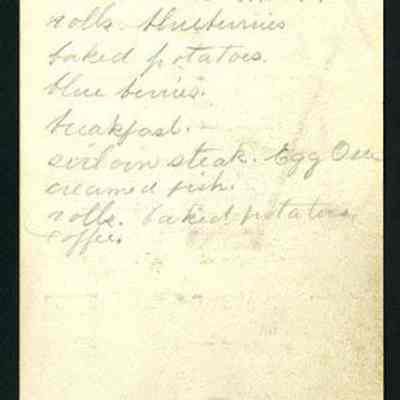 rolls. blueberries
baked potatoes.
blue berries.
breakfast.
sirloin steak. Egg Om
creamed fish.
rolls. baked potatoes,
coffee.